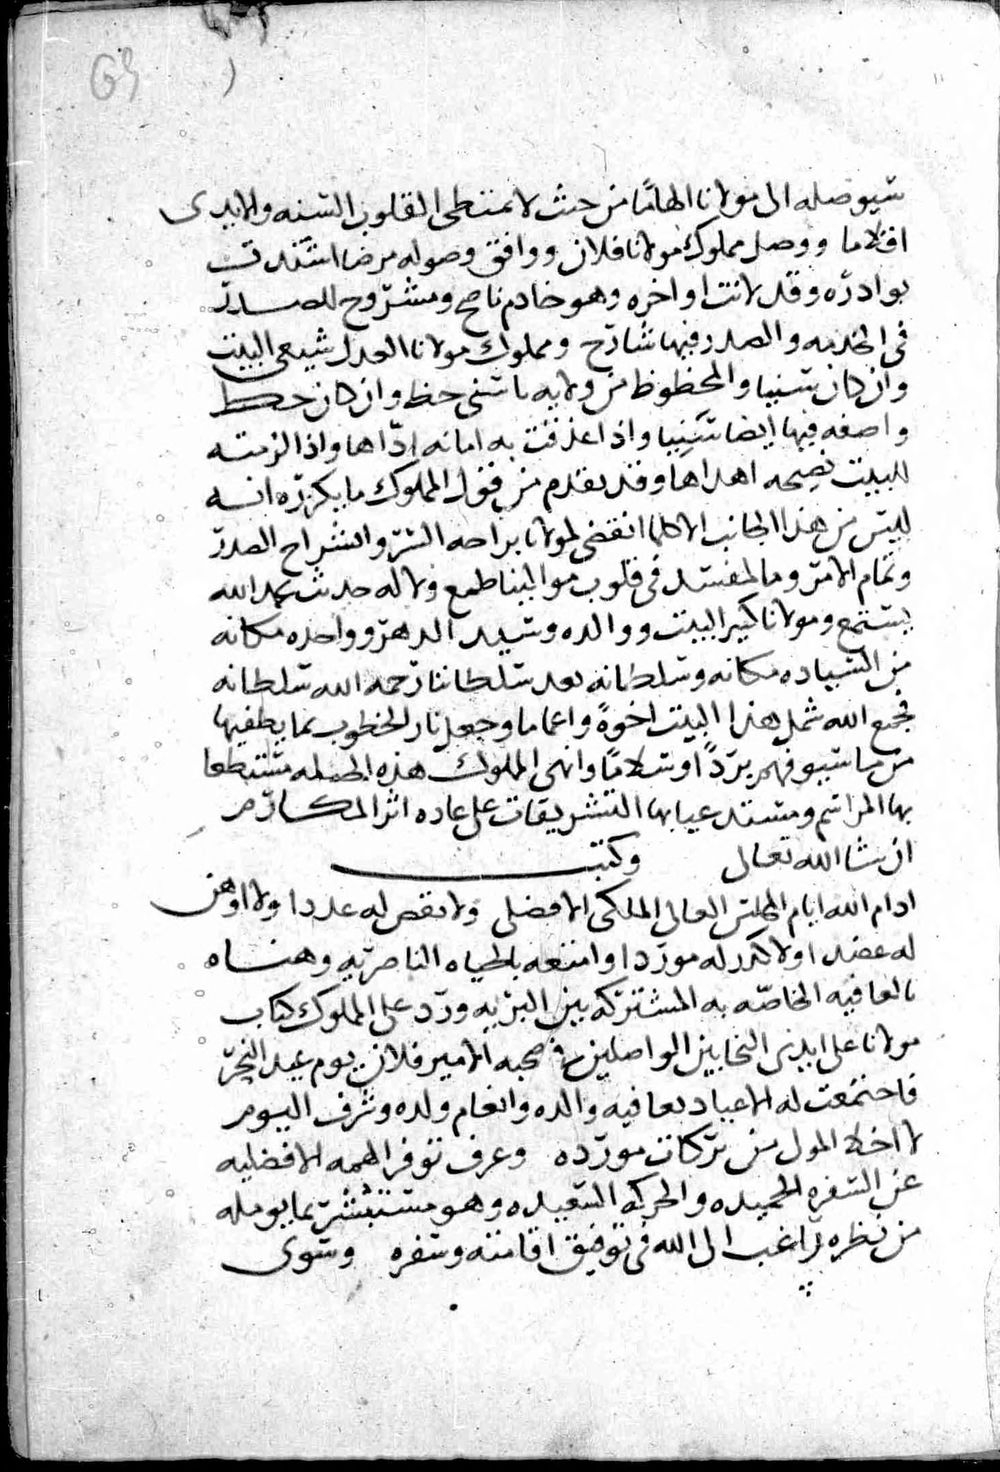 69
سيوصله الى مولانا الهاما من حيث لا تمتطى القلوب السنه والايدى
اقلاما ووصل مملوك مولانا فلان ووافق وصوله مرضا اشتدت
بوادره وقد لانت اواخره وهو خادم ناصح ومشروح للصدر
فى الخدمه والصدر فيها شارح ومملوك مولانا العدل شيعى البيت
وان كان سنيا والمحظوظ من ولايه باسنى حظ وان كان حظ
واصفه فيها ايضا سنيا واذا عذقت به امانه ادّاها واذا لزمته
للبيت نصيحه اهداها وقد تقدم من قول المملوك ما يكرره انه
ليس من هذا الجانب الا كلما انقضى لمولانا براحه السر وانشراح الصدر
وتمام الامر وما لمفسد فى قلوب موالينا طمع ولا له حديث بحمد الله
يستمع ومولانا كبير البيت ووالده وسيد الدهر وواحده مكانه
من السياده مكانه وسلطانه بعد سلطاننا رحمه الله سلطانه
فجمع الله شمل هذا البيت اخوةً واعماما وجعل نار الخطوب بما يطفيها
من ماسيوفهم بردًا وسلامًا وانهى المملوك هذه الجمله مستنطعا
بها المراسم ومستدعيا بها التشريفات على عاده اثر المكارم
ان شا الله تعالى وكتب
ادام الله ايام المجلس العالى الملكى الافضلى ولا نقص له عددا ولا اوهن
له عضدا ولا كدر له موردا وامتعه بالحياه الناصريه وهناه
بالعافيه الخاصّه به المشتركه بين البريه ورد على المملوك كتاب
مولانا على ايدى النجابين الواصلين فى صحبه الامير فلان يوم عيد النحر
فاجتمعت له الاعياد بعافيه والده وانعام ولده وشرف اليوم
لا اخلا المولى من بركات مورده وعرف توفر الهمه الافضليه
عن السفره الحميده والحركه السعيده وهو مستبشر بما يومله
من نظره راغب الى الله فى توفيق اقامته وسفره وسوى